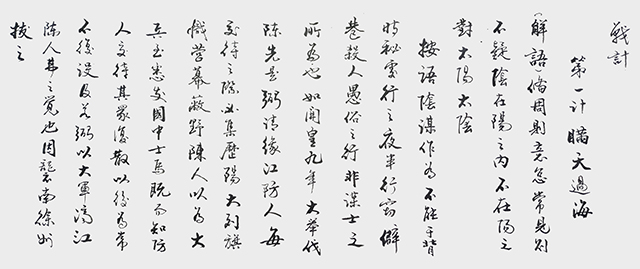 戰計
第一計 瞞天過海
「解語」備周則意怠常見則
不疑陰在陽之內不在陽之
對太陽太陰
按語陰謀作為不能于背
時秘處行之夜半行竊僻
巷殺人愚俗之行非謀士之
所為也如開皇九年大舉伐
陳先是弼請緣江防人每
交待之際必集歷陽大列旗
幟營幕蔽野陳人以為大
兵至悉發國中士馬既而知防
人交待其眾復散以後為常
不復設及若弼以大軍濟江
陳人弗之覺也因襲南徐州
拔之